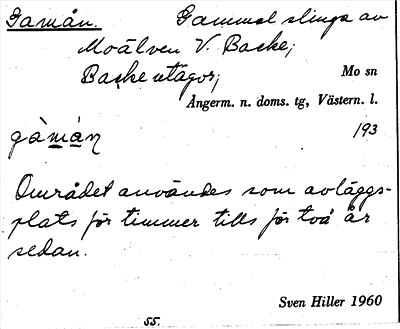 Gamån. Gammal slinga av
Moälven V. Backe;
Backe utägor; Mo sn
Ångerm. n. doms. tg, Västern. l.
gàmán /93
Området användes som avläggs-
plats för timmer tills för två år
sedan.
Sven Hiller 1960
55.